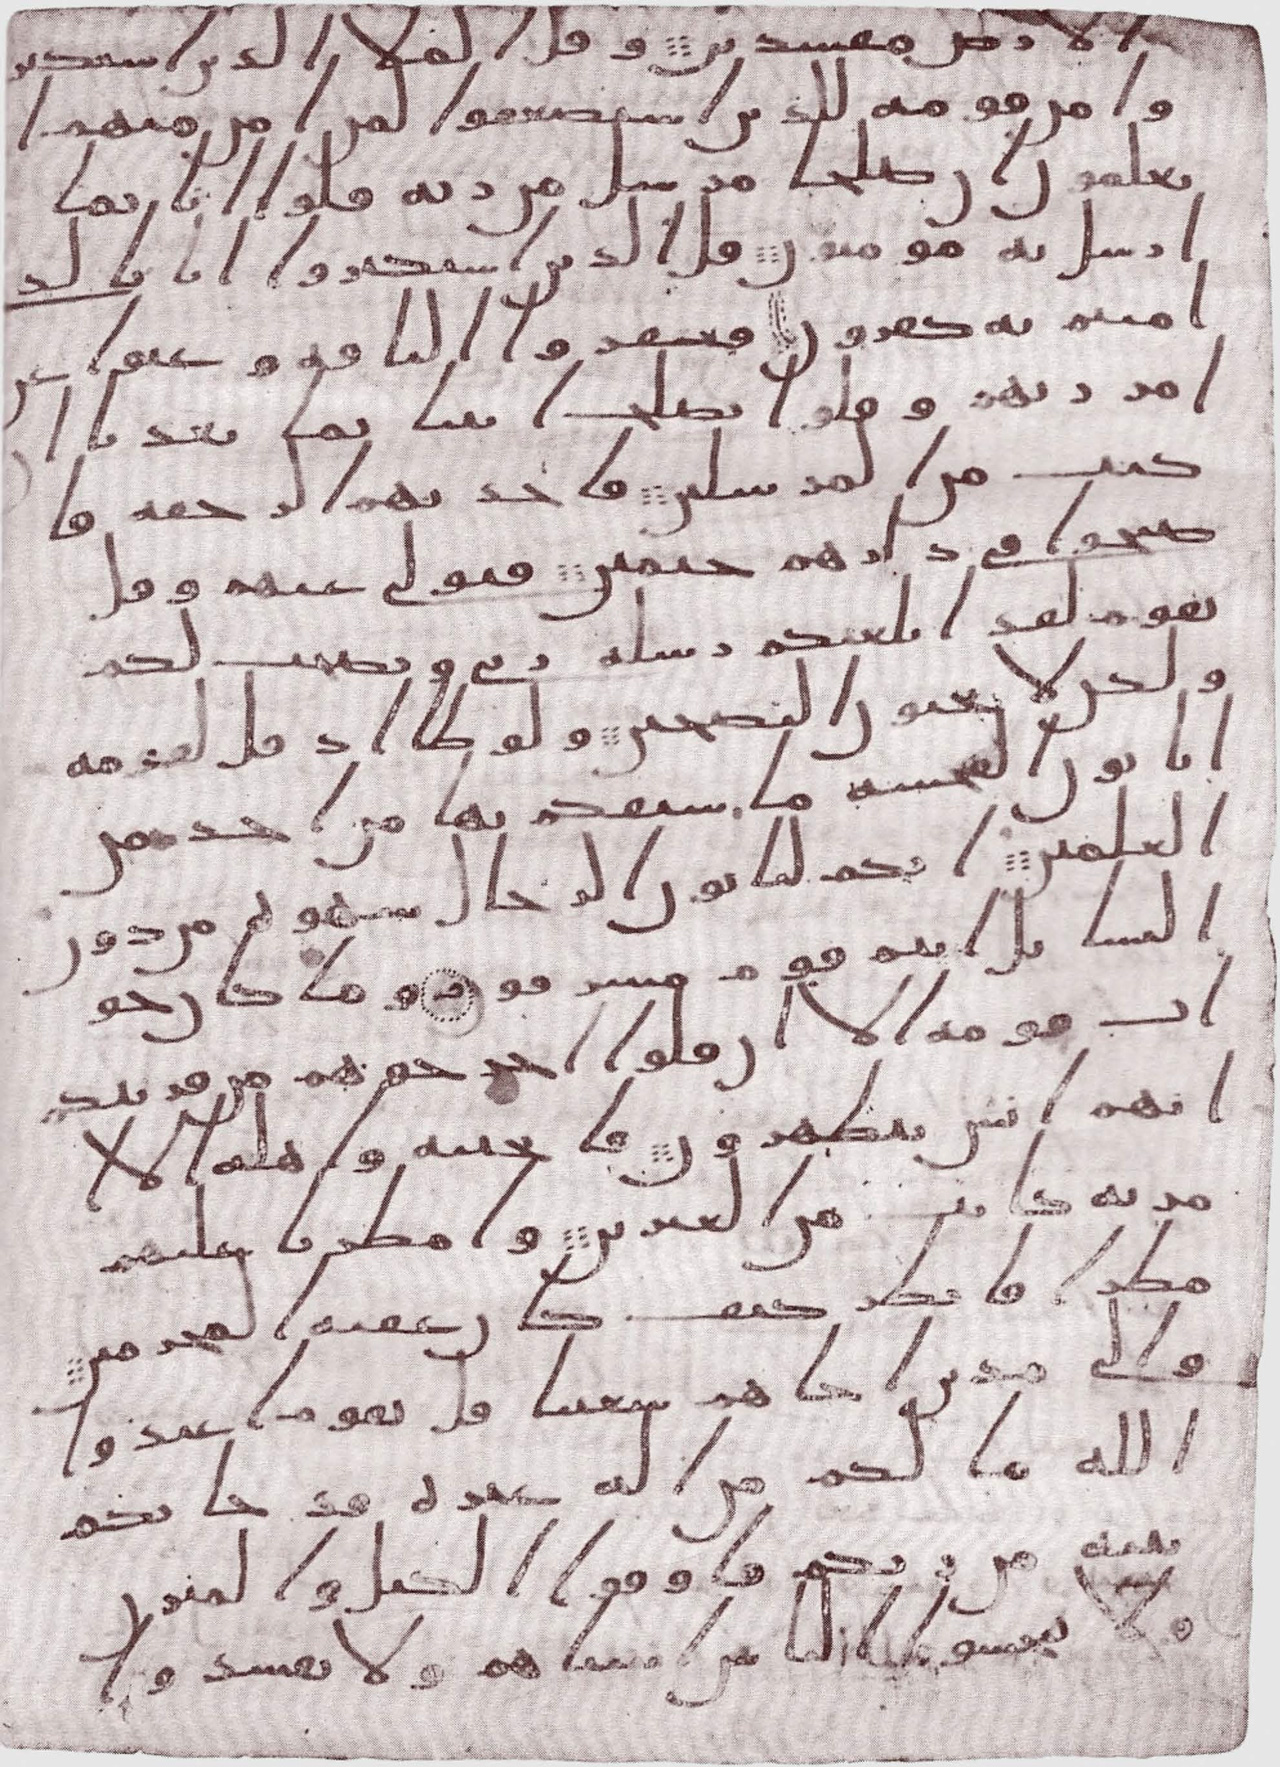 الارض مفسدين وقل الملا الذين استكبر
وا من قومه للذين استضعفوا لمن امن منهم ا
تعلمون ان صلحا مرسل من ربه قلوا انا بما
ارسل به مومنون قل الذين استكبروا انا بالذى
امنتم به كفرون فعقروا الناقه وعتوا عن
امر ربهم وقلوا يصلح ايتنا بما تعدنا ان
كنت من المرسلين فاخذتهم الرجفه فا
صبحوا في دارهم جثمين فتولى عنهم وقل
يقوم لقد ابلغتكم رسله ربي ونصحت لكم
ولكن لا تحبون النصحين ولوطا اذ قل لقومه
اتاتون الفحشه ما سبقكم بها من احد من
العلمين انكم لتاتون الرجال شهوه من دون
النسا بل انتم قوم مسرفون وما كان جو
اب قومه الا ان قلوا اخرجوهم من قريتكم
انهم انس يتطهرون فانجينه واهله الا ا
مرته كانت من الغبرين وامطرنا عليهم
مطرا فانظر كيف كان عقبه المجرمين
والى مدين اخاهم شعيبا قل يقوم اعبدوا
الله ما لكم من اله غيره قد جاتكم
بينه من ربكم فاوفوا الكيل والميزن
ولا تبخسوا الناس اشياهم ولا تفسدوا